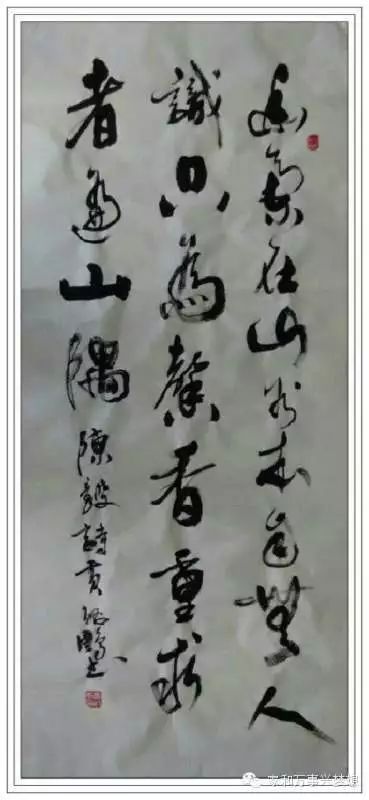 幽蘭在山谷本自無人
識只為馨香重求
者遍山隅
陳毅詩黃
家和万事兴梦